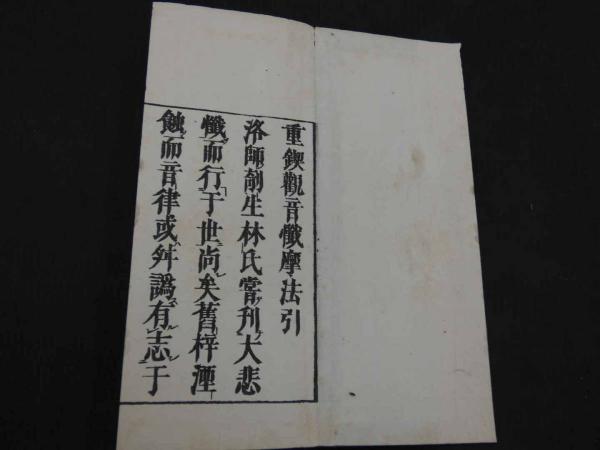 重鍥觀音懺摩法引
洛師剞生林氏嘗刋大悲
懺而行于世尚矣舊梓湮
蝕而音律或舛譌有志于